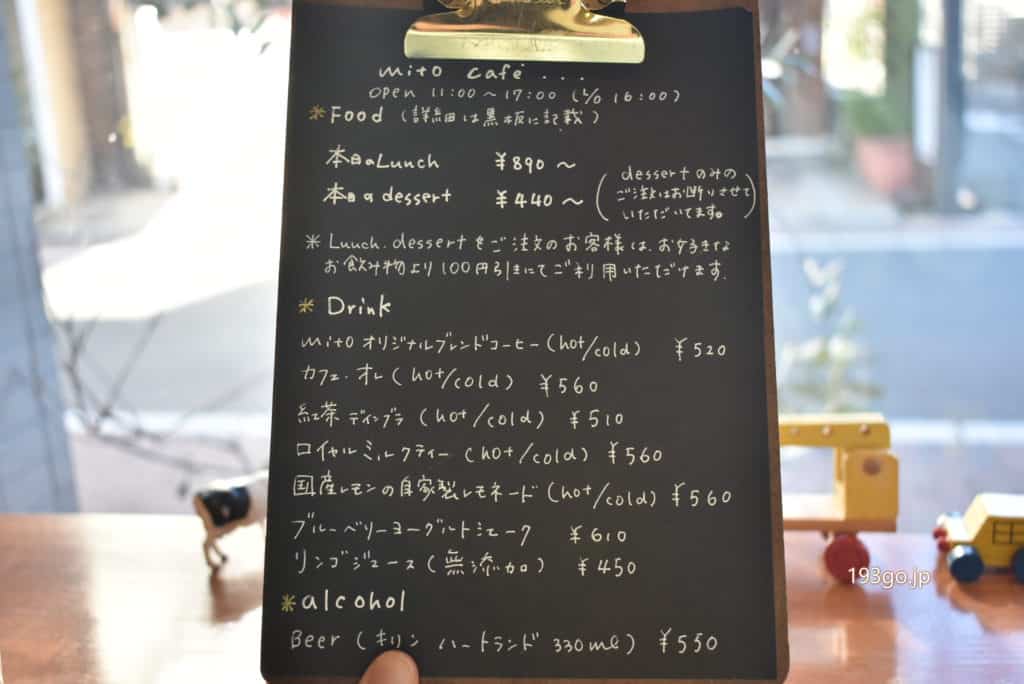 mito café ...
open 11:00～17:00 (L/O 16:00)
* Food (詳細は黒板に記載)
本日のLunch ¥890～
本日のdessert ¥440～
(dessertのみの
ご注文はお断りさせて
いただいてます。)
* Lunch.dessertをご注文のお客様は、お好きな
お飲み物より100円引きにてご利用いただけます.
* Drink
mitoオリジナルブレンドコーヒー(hot/cold) ¥520
カフェ・オレ(hot/cold) ¥560
紅茶 ディンブラ (hot/cold) ¥510
ロイヤルミルクティー (hot/cold) ¥560
国産レモンの自家製レモネード(hot/cold) ¥560
ブルーベリーヨーグルトシェーク ¥610
リンゴジュース(無添加) ¥450
* alcohol
Beer (キリン ハートランド 330ml) ¥550
193go.jp